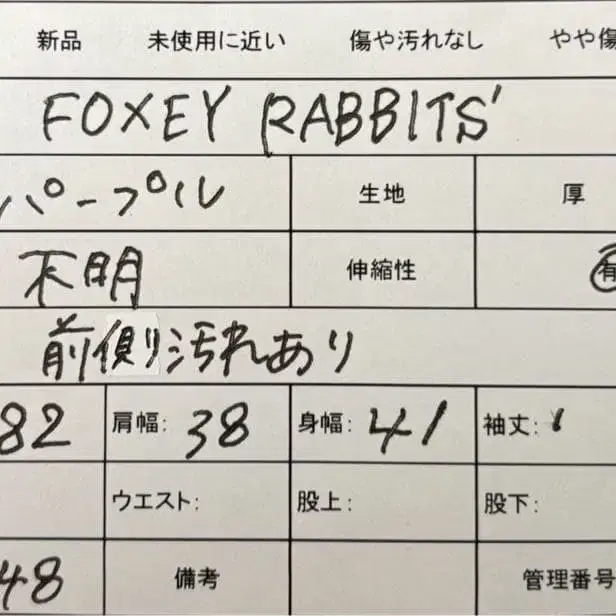 新品 未使用に近い 傷や汚れなし やや傷
FOXEY RABBITS'
パープル 生地 厚
不明 伸縮性 有
前側汚れあり
82 肩幅: 38 身幅: 41 袖丈:
ウエスト: 股上: 股下:
48 備考 管理番号